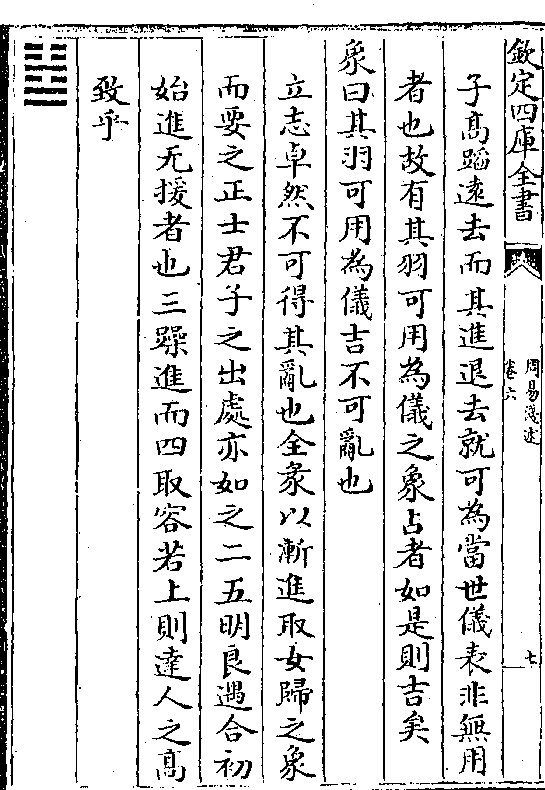 欽定四庫全書
周易淺述
卷六
七
子髙蹈逺去而其進退去就可為當世儀表非無用
者也故有其羽可用為儀之象占者如是則吉矣
象曰其羽可用為儀吉不可亂也
立志卓然不可得其亂也全彖以漸進取女歸之象
而要之正士君子之出處亦如之二五明良遇合初
始進无援者也三躁進而四取容若上則達人之髙
致乎